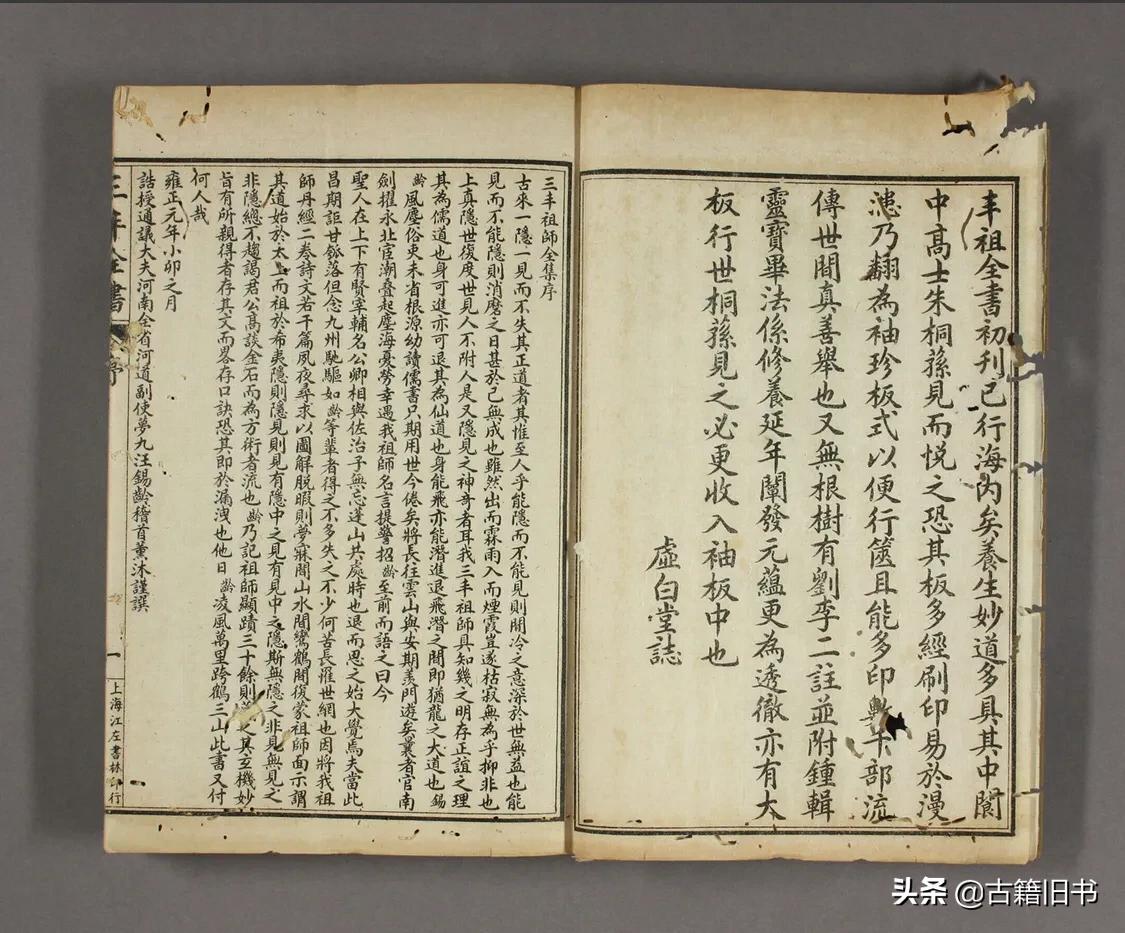 丰祖全書初刊已行海內矣養生妙道多具其中閬
中高士朱桐蓀見而悅之恐其板多經刷印易於漫
漶乃翻為袖珍板式以便行篋且能多印數千部流
傳世間真善舉也又無根樹有劉李二註並附鍾輯
靈寶畢法係修養延年闡發元蘊更為透徹亦有大
板行世桐蓀見之必更收入袖板中也
虛白堂誌
三丰祖師全集序
古來一隱一見而不失其正道者其惟至人乎能隱而不能見則閒冷之意深於世無益也能
見而不能隱則消磨之日甚於己無成也雖然出而霖雨入而煙霞豈遂枯寂無為乎抑非也
上真隱世復度世見人不附人是又隱見之神奇者耳我三丰祖師具知幾之明存正誼之理
其為儒道也身可進亦可退其為仙道也身能飛亦能潛進退飛潛之間即猶龍之大道也錫
齡風塵俗吏未省根源幼讀儒書只期用世今倦矣將長往雲山與安期羨門遊矣曩者官南
劍擢永北宦潮疊起塵海憂勞幸遇我祖師名言提警招齡至前而語之曰今
聖人在上下有賢宰輔名公卿相與佐治子無忘蓬山共處時也退而思之始大覺焉夫當此
昌期詎甘瓠落但念九州馳驅如齡等輩者得之不多失之不少何苦長羅世網也因將我祖
師丹經二卷詩文若干篇夙夜尋求以圖解脫暇則夢寐間山水間鸞鶴間復蒙祖師面示謂
其道始於太上而祖於希夷隱則隱見則見有隱中之見有見中之隱斯無隱之非見無見之
非隱總不趨謁君公高談金石而為方術者流也齡乃記祖師顯蹟三十餘則之其玄機妙
旨有所親得者存其文而畧存口訣恐其即於漏洩也他日齡凌風萬里跨鶴三山此書又付
何人哉
雍正元年小卯之月
誥授通議大夫河南全省河道副使夢九汪錫齡稽首薰沐謹譔
三丰全書
序
一
上海江左書林印行
头条 @古籍旧书